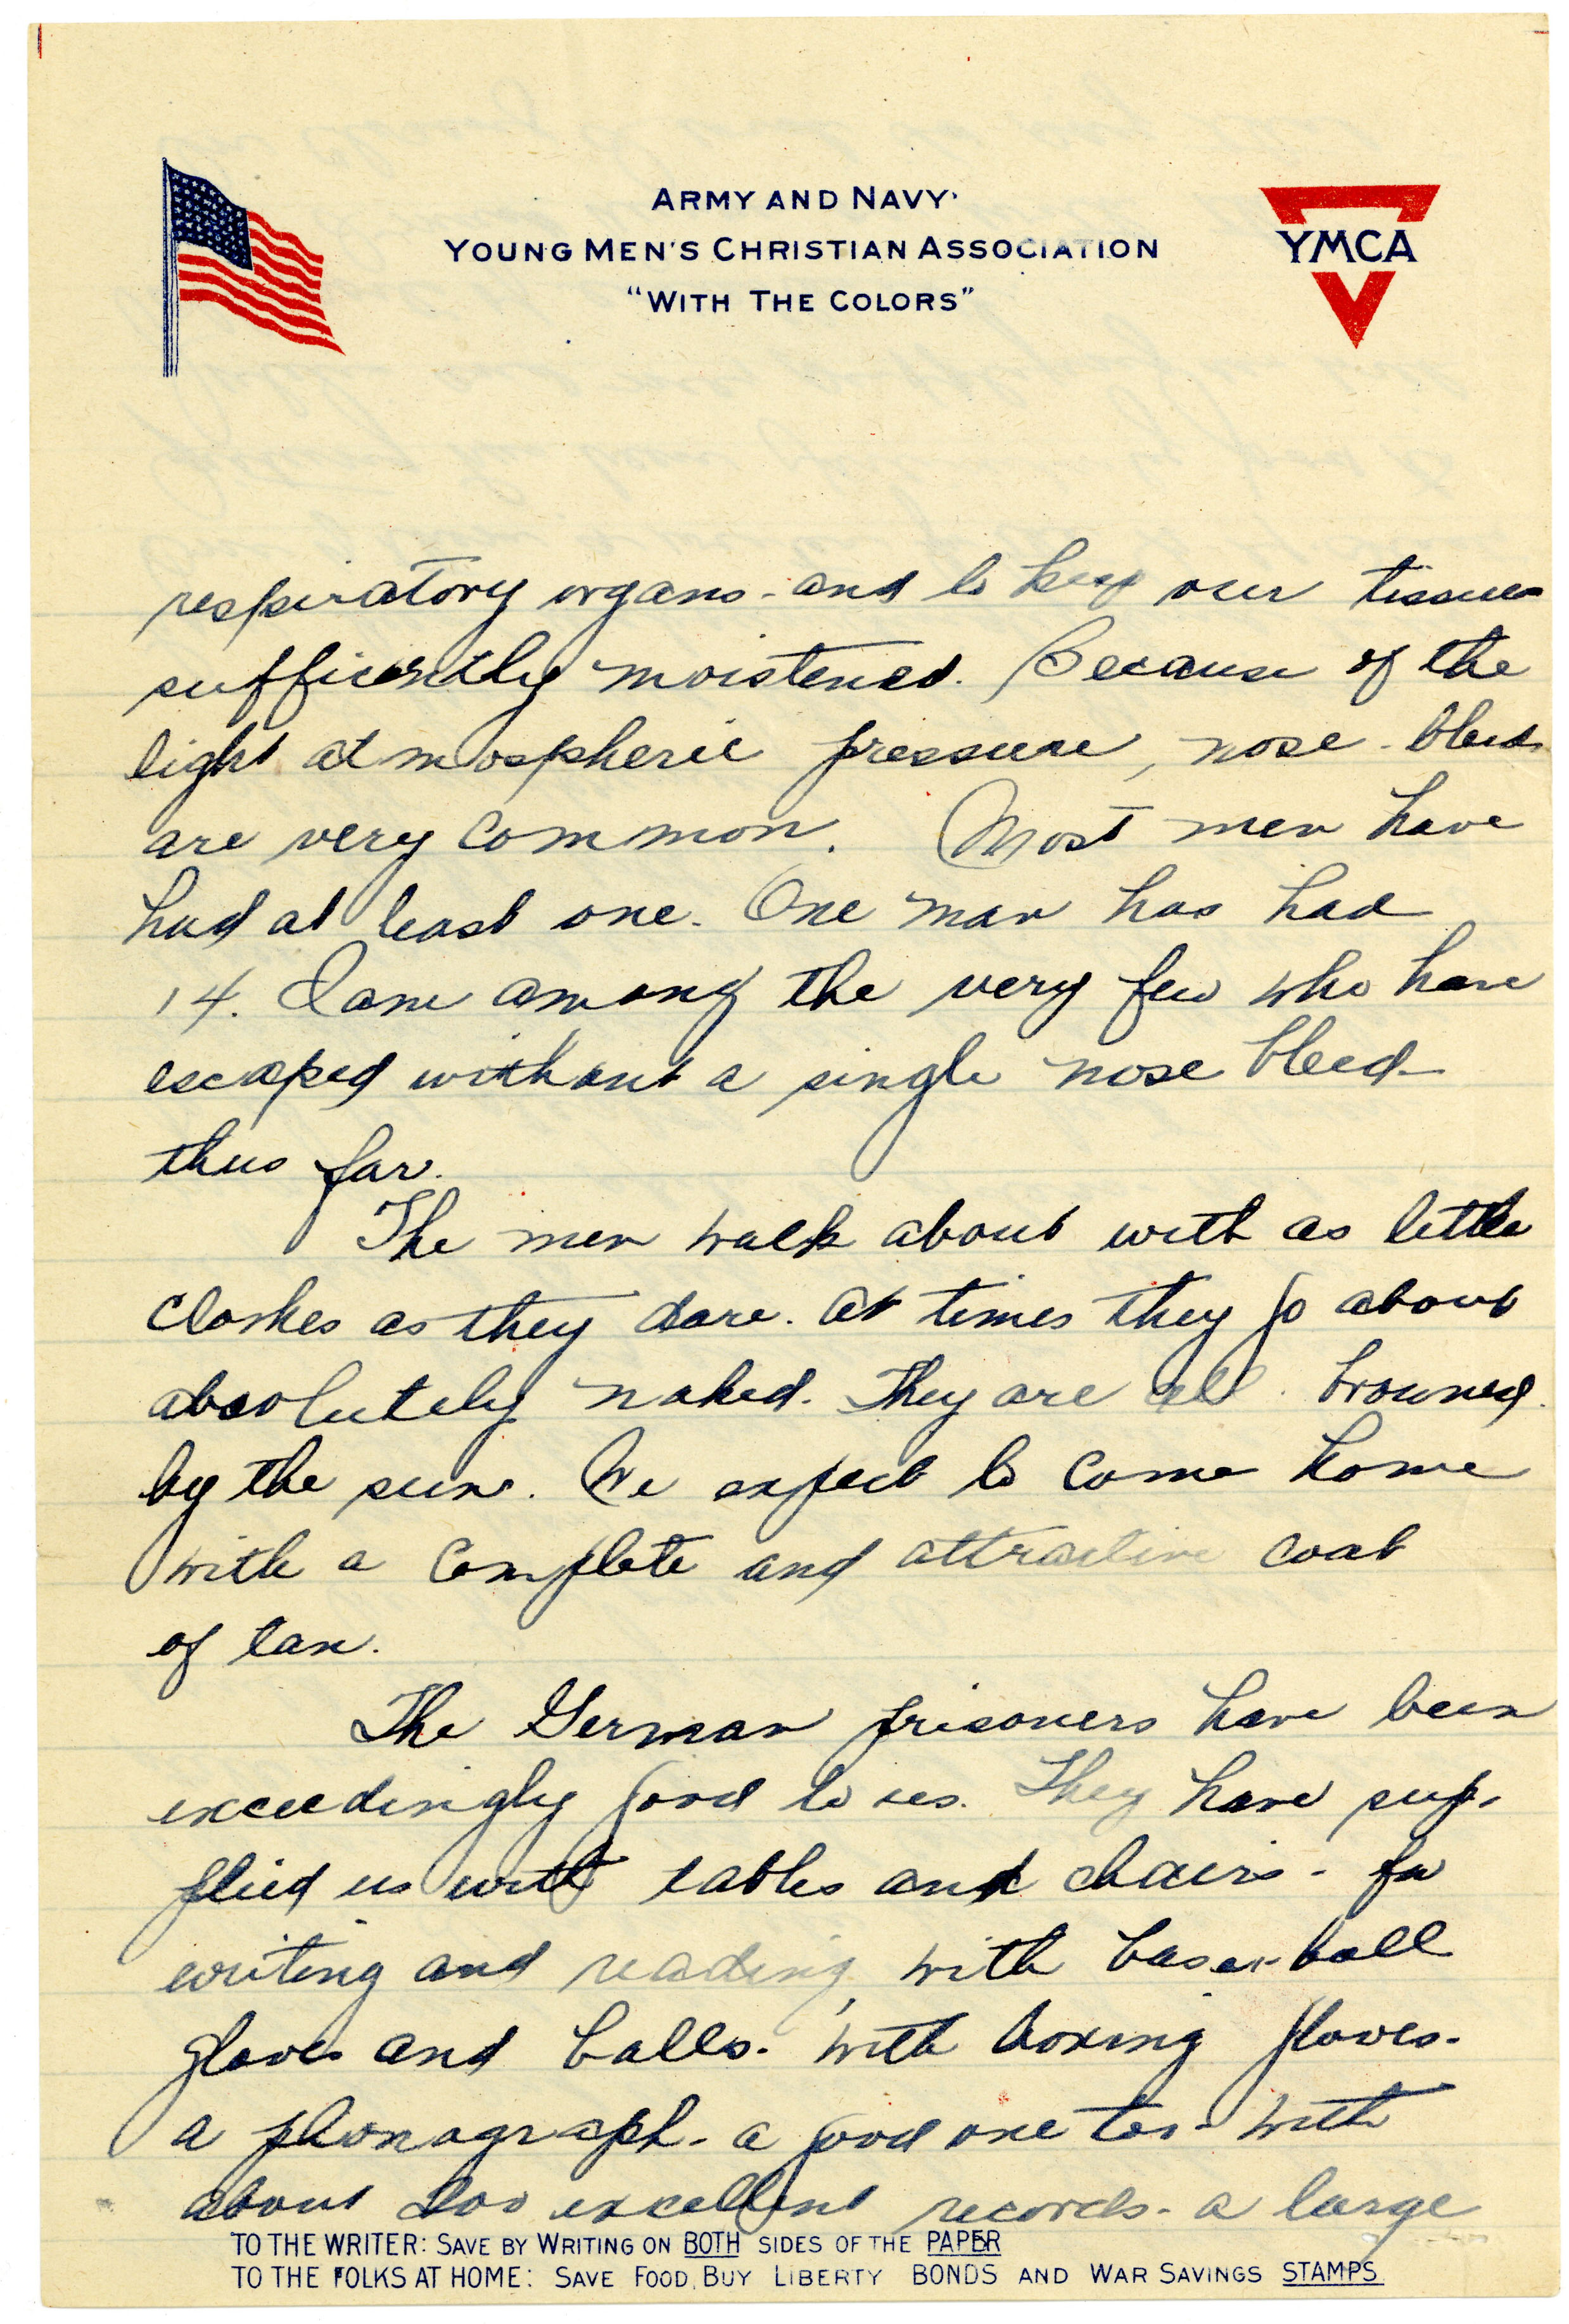 ARMY AND NAVY
YOUNG MEN'S CHRISTIAN ASSOCIATION
"WITH THE COLORS"
YMCA
respiratory organs - and to keep our tissues
sufficiently moistened. Because of the
light atmospheric pressure, nose-bleeds
are very common. Most men have
had at least one. One man has had
14. I am among the very few who have
escaped without a single nose bleed
thus far.
The men walk about with as little
clothes as they dare. At times they go about
absolutely naked. They are all browned
by the sun. We expect to come home
with a complete and attractive coat
of tan.
The German prisoners have been
exceedingly good to us. They have sup-
plied us with tables and chairs - for
writing and reading, with base-ball
gloves and balls - with boxing gloves -
a phonograph - a good one too - with
about 200 excellent records - a large
TO THE WRITER: SAVE BY WRITING ON BOTH SIDES OF THE PAPER
TO THE FOLKS AT HOME: SAVE FOOD, BUY LIBERTY BONDS AND WAR SAVINGS STAMPS